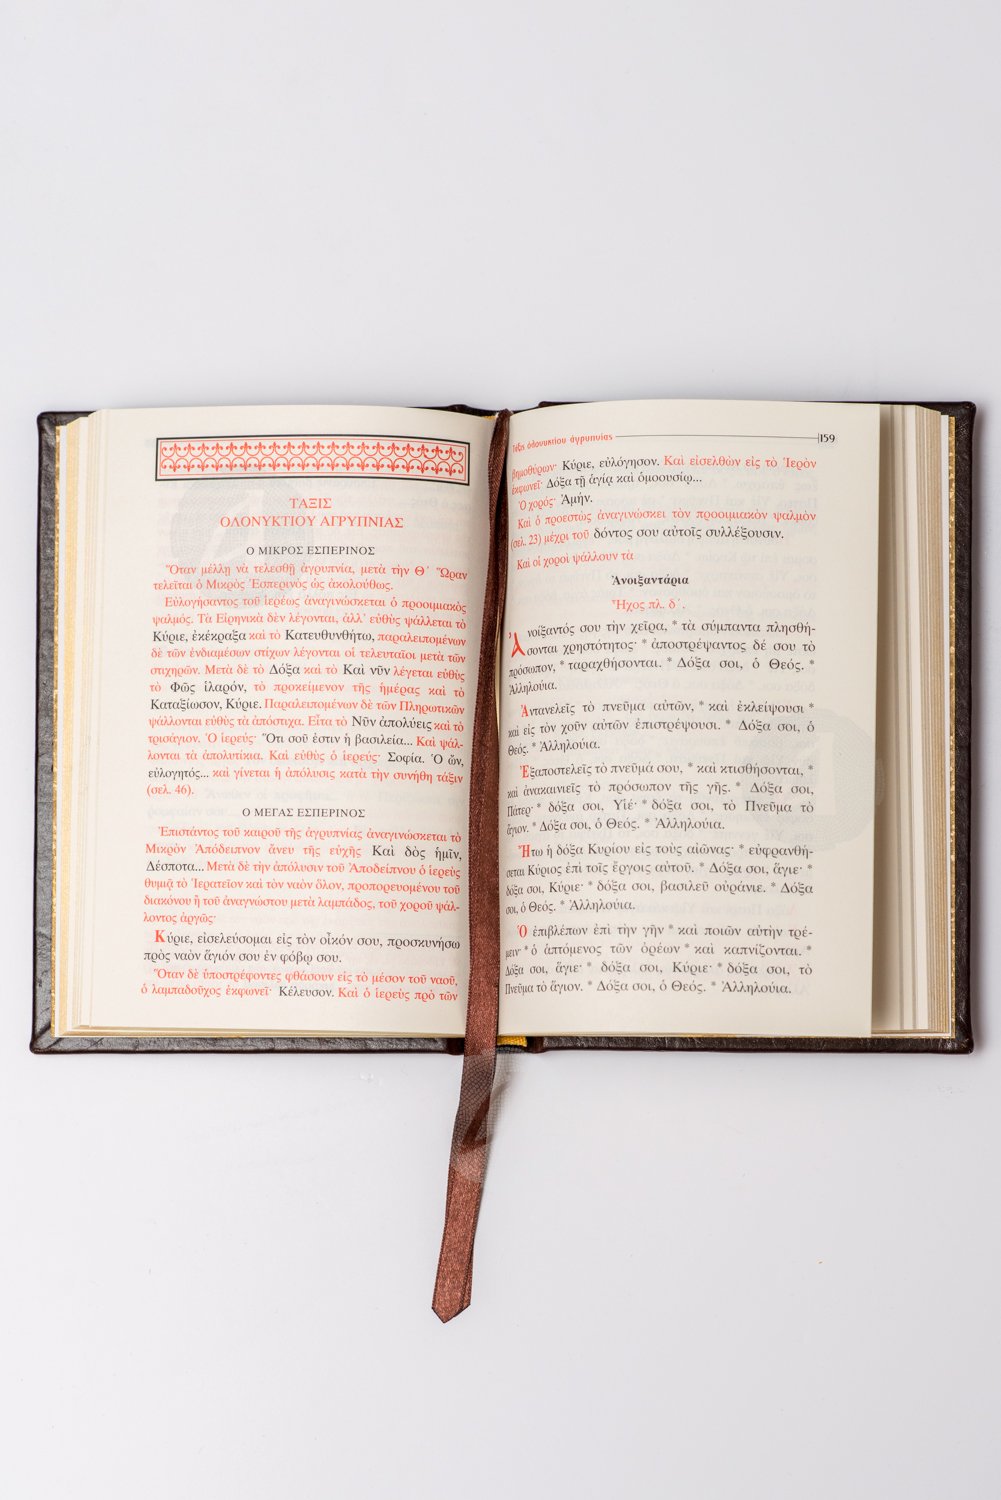 ΤΑΞΙΣ
ΟΛΟΝΥΚΤΙΟΥ ΑΓΡΥΠΝΙΑΣ
Ο ΜΙΚΡΟΣ ΕΣΠΕΡΙΝΟΣ
Ὅταν μέλλῃ νὰ τελεσθῇ ἀγρυπνία, μετὰ τὴν Θ´ Ὥραν
τελεῖται ὁ Μικρὸς Ἑσπερινὸς ὡς ἀκολούθως.
Εὐλογήσαντος τοῦ ἱερέως ἀναγινώσκεται ὁ προοιμιακὸς
ψαλμός. Τὰ Εἰρηνικὰ δὲν λέγονται, ἀλλ᾽ εὐθὺς ψάλλεται τὸ
Κύριε, ἐκέκραξα καὶ τὸ Κατευθυνθήτω, παραλειπομένων
δὲ τῶν ἐνδιαμέσων στίχων λέγονται οἱ τελευταῖοι μετὰ τῶν
στιχηρῶν. Μετὰ δὲ τὸ Δόξα καὶ τὸ Καὶ νῦν λέγεται εὐθὺς
τὸ Φῶς ἱλαρόν, τὸ προκείμενον τῆς ἡμέρας καὶ τὸ
Καταξίωσον, Κύριε. Παραλειπομένων δὲ τῶν Πληρωτικῶν
ψάλλονται εὐθὺς τὰ ἀπόστιχα. Εἶτα τὸ Νῦν ἀπολύεις καὶ τὸ
τρισάγιον. Ὁ ἱερεύς· Ὅτι σοῦ ἐστιν ἡ βασιλεία... Καὶ ψάλ-
λονται τὰ ἀπολυτίκια. Καὶ εὐθὺς ὁ ἱερεύς· Σοφία. Ὁ ὤν,
εὐλογητός... καὶ γίνεται ἡ ἀπόλυσις κατὰ τὴν συνήθη τάξιν
(σελ. 46).
Ο ΜΕΓΑΣ ΕΣΠΕΡΙΝΟΣ
Ἐπιστάντος τοῦ καιροῦ τῆς ἀγρυπνίας ἀναγινώσκεται τὸ
Μικρὸν Ἀπόδειπνον ἄνευ τῆς εὐχῆς Καὶ δὸς ἡμῖν,
Δέσποτα... Μετὰ δὲ τὴν ἀπόλυσιν τοῦ Ἀποδείπνου ὁ ἱερεὺς
θυμιᾷ τὸ Ἱερατεῖον καὶ τὸν ναὸν ὅλον, προπορευομένου τοῦ
διακόνου ἢ τοῦ ἀναγνώστου μετὰ λαμπάδος, τοῦ χοροῦ ψάλ-
λοντος ἀργῶς·
Κύριε, εἰσελεύσομαι εἰς τὸν οἶκόν σου, προσκυνήσω
πρὸς ναὸν ἅγιόν σου ἐν φόβῳ σου.
Ὅταν δὲ ὑποστρέφοντες φθάσουν εἰς τὸ μέσον τοῦ ναοῦ,
ὁ λαμπαδοῦχος ἐκφωνεῖ· Κέλευσον. Καὶ ὁ ἱερεὺς πρὸ τῶν
Τάξις ὁλονυκτίου ἀγρυπνίας 159
βημοθύρων· Κύριε, εὐλόγησον. Καὶ εἰσελθὼν εἰς τὸ Ἱερὸν
ἐκφωνεῖ· Δόξα τῇ ἁγίᾳ καὶ ὁμοουσίῳ...
Ὁ χορός· Ἀμήν.
Καὶ ὁ προεστὼς ἀναγινώσκει τὸν προοιμιακὸν ψαλμὸν
(σελ. 23) μέχρι τοῦ δόντος σου αὐτοῖς συλλέξουσιν.
Καὶ οἱ χοροὶ ψάλλουν τὰ
Ἀνοιξαντάρια
Ἦχος πλ. δ´.
Ἀνοίξαντός σου τὴν χεῖρα, * τὰ σύμπαντα πλησθή-
σονται χρηστότητος· * ἀποστρέψαντος δέ σου τὸ
πρόσωπον, * ταραχθήσονται. * Δόξα σοι, ὁ Θεός. *
Ἀλληλούια.
Ἀντανελεῖς τὸ πνεῦμα αὐτῶν, * καὶ ἐκλείψουσι *
καὶ εἰς τὸν χοῦν αὐτῶν ἐπιστρέψουσι. * Δόξα σοι, ὁ
Θεός. * Ἀλληλούια.
Ἐξαποστελεῖς τὸ πνεῦμά σου, * καὶ κτισθήσονται, *
καὶ ἀνακαινιεῖς τὸ πρόσωπον τῆς γῆς. * Δόξα σοι,
Πάτερ· * δόξα σοι, Υἱέ· * δόξα σοι, τὸ Πνεῦμα τὸ
ἅγιον. * Δόξα σοι, ὁ Θεός. * Ἀλληλούια.
Ἤτω ἡ δόξα Κυρίου εἰς τοὺς αἰῶνας· * εὐφρανθή-
σεται Κύριος ἐπὶ τοῖς ἔργοις αὐτοῦ. * Δόξα σοι, ἅγιε· *
δόξα σοι, Κύριε· * δόξα σοι, βασιλεῦ οὐράνιε. * Δόξα
σοι, ὁ Θεός. * Ἀλληλούια.
Ὁ ἐπιβλέπων ἐπὶ τὴν γῆν * καὶ ποιῶν αὐτὴν τρέ-
μειν· * ὁ ἁπτόμενος τῶν ὀρέων * καὶ καπνίζονται. *
Δόξα σοι, ἅγιε· * δόξα σοι, Κύριε· * δόξα σοι, τὸ
Πνεῦμα τὸ ἅγιον. * Δόξα σοι, ὁ Θεός. * Ἀλληλούια.